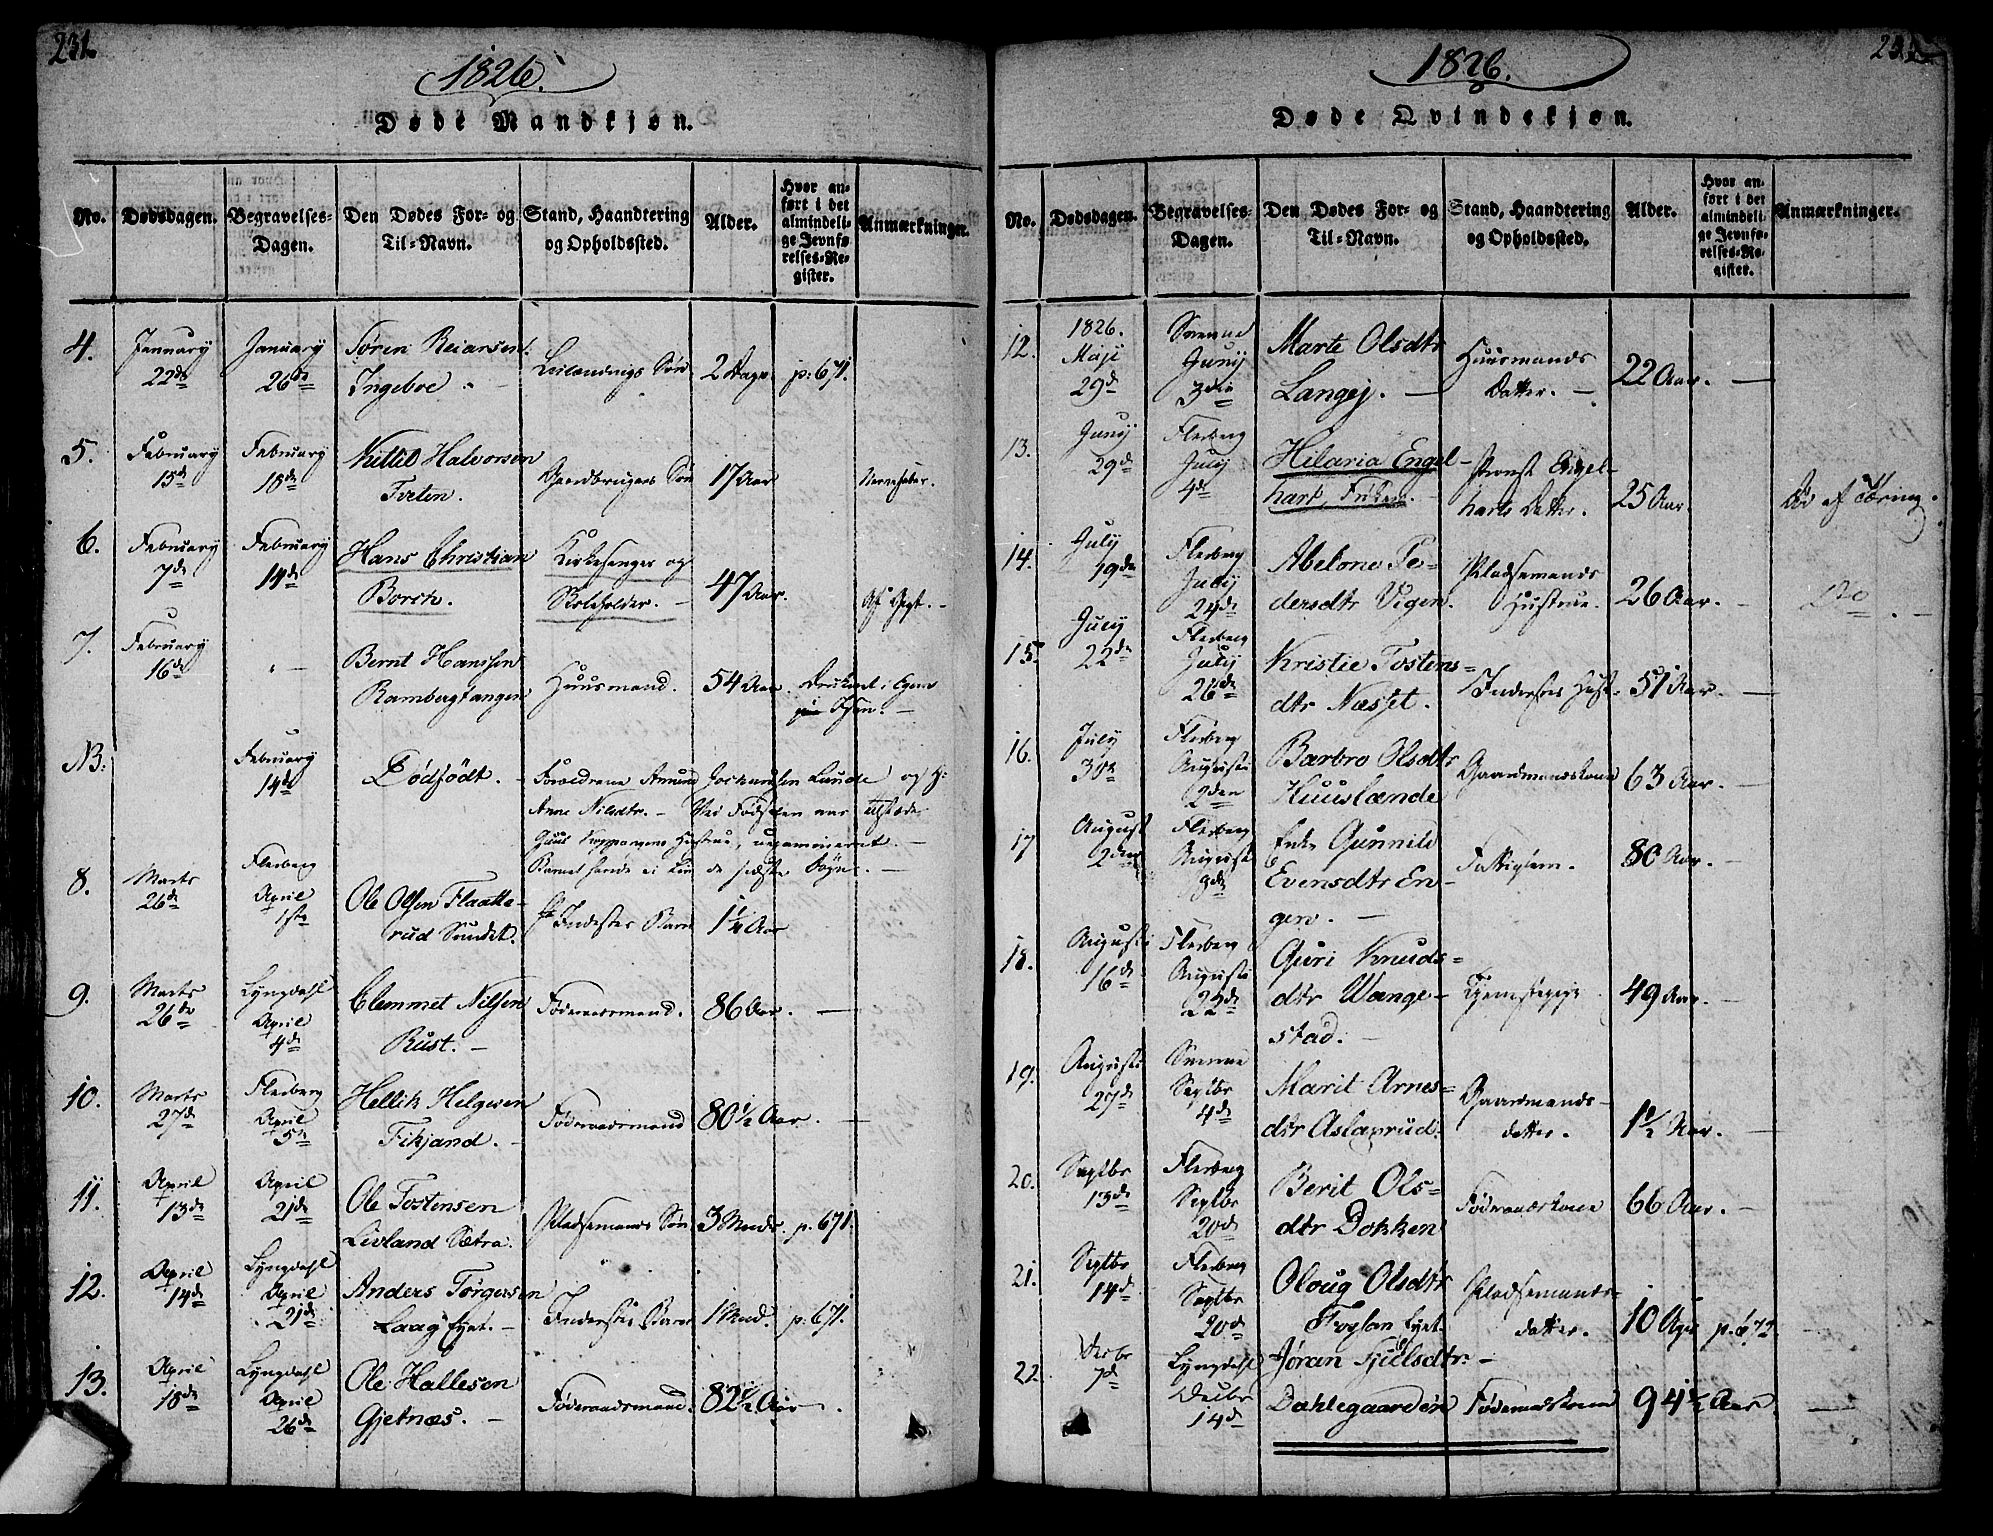 231.
1826.
Døde Mandkjøn.
No.
Dødsdagen.
Begravelses-
Dagen.
Den Dødes For- og
Til-Navn.
Stand, Haandtering
og Opholdssted.
Alder.
Hvor an-
ført i det
almindeli-
ge Jevnfø-
relses-Re-
gister.
Anmærkninger.
4.
January
22de
January
26de
Søren Reiersen
Ingeboe
Leilændings Søn
2 Dage
p: 671.
5.
February
15de
February
18de
Kittil Halvorsen
Tveten.
Gaardbrugers Søn
17 Aar
Nervefeber.
6.
February
7de
February
14de
Hans Christian
Borch.
Kirkesanger og
Skoleholder.
47 Aar.
Af Gigt.
7.
February
16de
Bernt Hanssen
Rambergtangen
Huusmand.
54 Aar
Druknet i Egens
Isen.
NB:
February
14de
Dødfødt.
Forældrene Amund Gorhansen Lunde og H:
Anne Nilsdtr. Ved Fødselen var tilstæde
Guul Hustrue, uexamineret.
Barnet havde ei Liv de sidste Døgn.
8.
Marts
26de
Flesberg
April
1ste
Ole Olsen Flaatte-
rud Sundet.
Inderstes Barn
1¼ Aar
9.
Marts
26de
Lyngdahl
April
4de
Clemmet Nilsen
Rust.
Føderaadsmand.
86 Aar.
10.
Marts
27de
Flesberg
April
5te
Hellik Helgesen
Fikjand.
Føderaadsmand
80½ Aar.
11.
April
13de
April
21de
Ole Tostensen
Livland Sætra.
Pladsemands Søn
3 Mndr.
p. 671.
12.
April
14de
Lyngdahl
April
21de
Anders Torgersen
Laag Eyet.
Inderstes Barn
1 Mnd.
p: 671.
13.
April
18de
Lyngdahl
April
26de
Ole Hallesen
Gjetnæs.
Føderaadsmand.
82½ Aar.
1826.
Døde Qvindekjøn.
No.
Dødsdagen.
Begravelses-
Dagen.
Den Dødes For- og
Til-Navn.
Stand, Haandtering
og Opholdssted.
Alder.
Hvor an-
ført i det
almindeli-
ge Jevnfø-
relses-Re-
gister.
Anmærkninger.
12.
1826.
Maji
29de
Svenne
Junij
3die
Marte Olsdtr
Langej.
Huusmands
Datter.
22 Aar.
13.
Junij
29de
Flesberg
July
4de
Hilaria Engel-
hart,
Provst Engel-
harts Datter.
25 Aar
Død af Tæring.
14.
July
19de
Flesberg
July
24de
Abelone Pe-
dersdtr Vigen.
Pladsemands
Hustrue.
26 Aar.
Do
15.
July
22de
Flesberg
July
26de
Kristie Tostens-
dtr Næsset.
Inderstes Hust.
51 Aar.
16.
July
30te
Flesberg
Augusti
2den
Barbro Olsdtr
Huuslænde
Gaardmandskone
63 Aar.
17
August
2den
Flesberg
Augusti
9de
Enke Gunnild
Evensdtr En-
gen.
Fattiglem.
80 Aar.
18.
Augusti
16de
Flesberg
Augusti
22de
Guri Knuds-
dtr Wange-
stad.
Tjenstepige
49 Aar.
19.
Augusti
27de
Svenne
Septbr
4de
Marit Arnes-
dtr Aslaxrud.
Gaardmands-
datter.
1½ Aar.
20.
Septbr
13de
Flesberg
Septbr
20de
Berit Ols-
dtr Dokken
Føderaadskone
66 Aar.
21.
Septbr
14de
Flesberg
Septbr
20de
Oloug Olsdtr
Eyet
Pladsemands-
datter.
10 Uger
p. 672.
22
Decbr
7de
Lyngdahl
Decbr
14de
Jøran Kjelsdtr:
Dahlegaarden
Føderaadskone
94½ Aar.